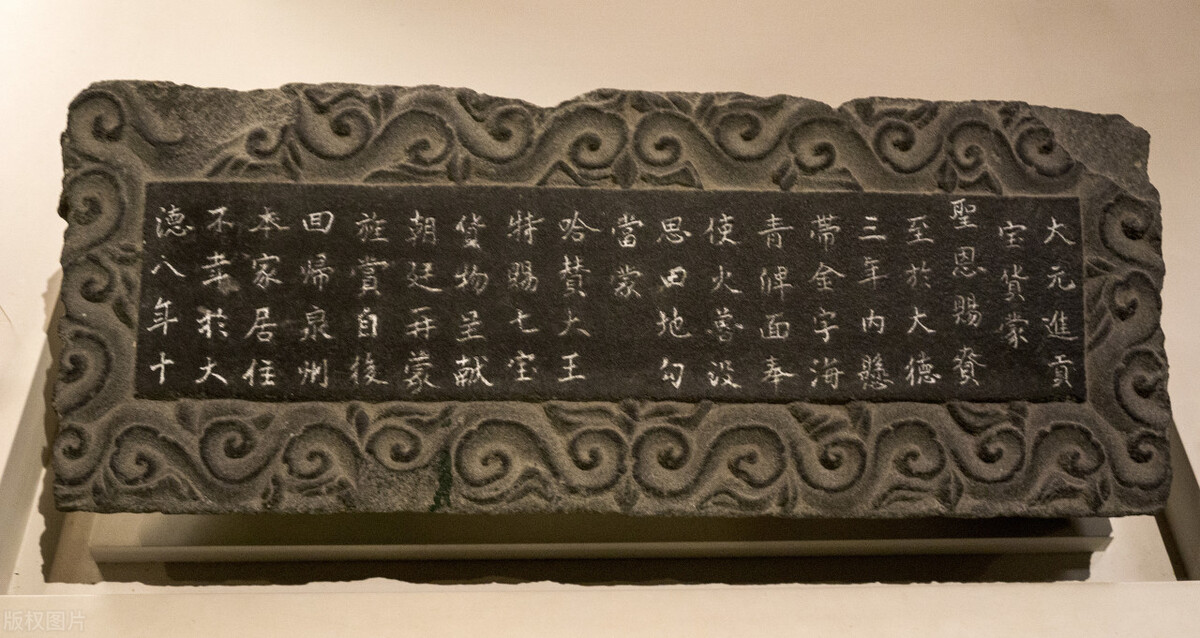 大元進貢
宝貨蒙
聖恩賜賚
至於大德
三年内懸
帶金字海
青牌面奉
使火魯没
思田地勾
當蒙
哈賛大王
特賜七宝
貨物呈献
朝廷再蒙
旌賞自後
回歸泉州
本家居住
不幸於大
德八年十
版权图片